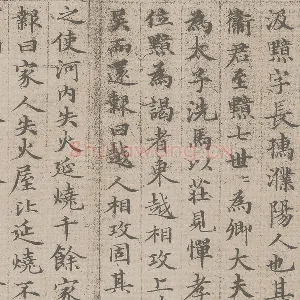 汲黯字長孺濮陽人也其
衛君至黯七世〻為卿大夫
為太子洗馬以莊見憚孝
位黯為謁者東越相攻上
吳而還報曰越人相攻固其
之使河内失火延燒千餘家
報曰家人失火屋比延燒不